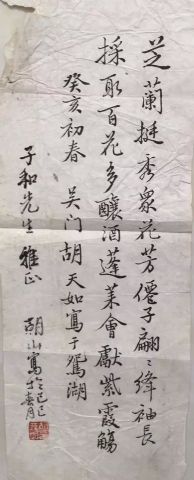 芝蘭挺秀眾花芳僊子翩〻絳袖長
採取百花多釀酒蓬萊會獻紫霞觴
癸亥初春 吴门胡天如寫于鴛湖
子和先生雅正
胡山寫於己巳春月